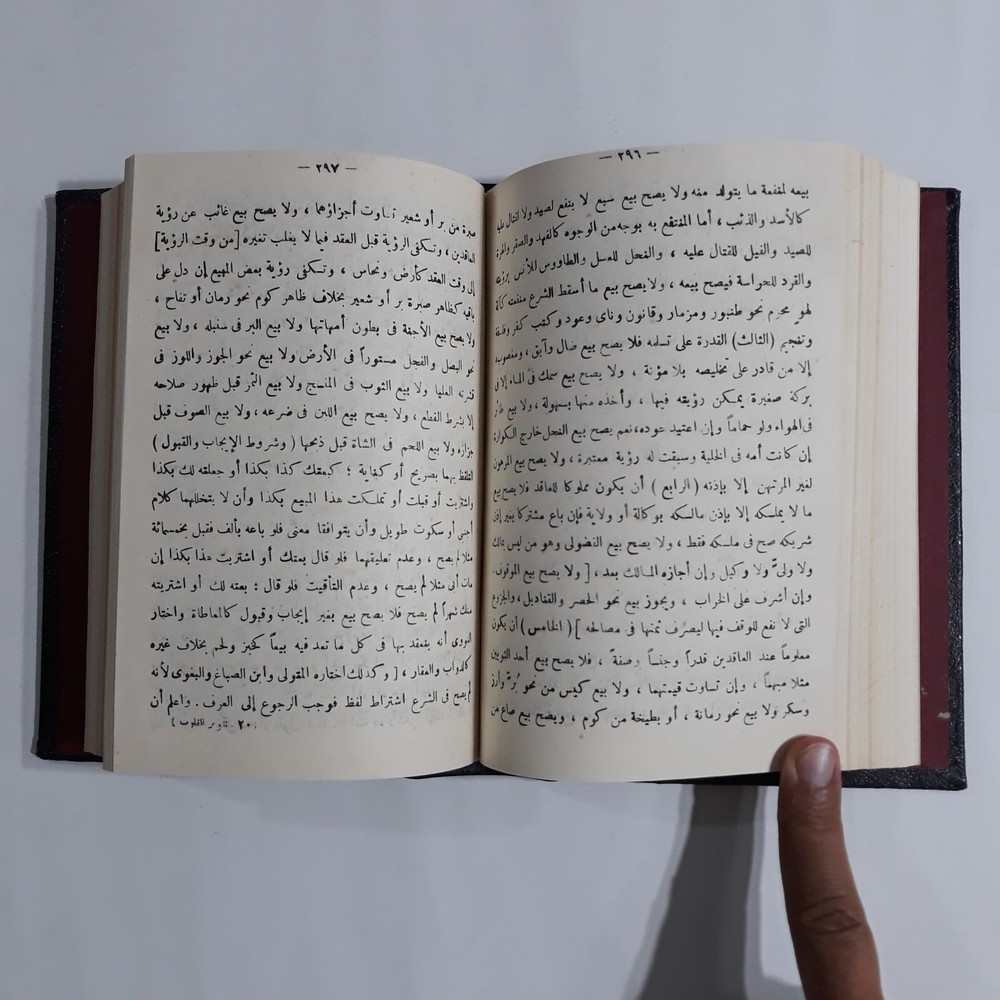 — ٢٩٦ —
بيعه لمنفعة ما يتولد منه ولا يصح بيع سبع لا ينفع لصيد ولا لقتال عليه
كالأسد والذئب، أما المنتفع به بوجه من الوجوه كالفهد والصقر والهرة
للصيد والفيل للقتال عليه ، والفحل للعسل والطاووس للأنس برؤيته
والقرد للحراسة فيصح بيعه ، ولا يصح بيع ما أسقط الشرع منفعته كآلة
لهو محرم نحو طنبور ومزمار وقانون وناى وعود وكتب كفر وفلسفة
وتنجيم (الثالث) القدرة على تسلمه فلا يصح بيع ضال وآبق ، ومغصوب
إلا من قادر على تخليصه بلا مؤنة ، ولا يصح بيع سمك فى الماء إلا فى
بركة صغيرة يمكن رؤيته فيها ، وأخذه منها بسهولة ، ولا بيع طائر
فى الهواء ولو حماماً وإن اعتيد عوده، نعم يصح بيع النحل خارج الكوارة
إن كانت أمه فى الخلية وسبقت له رؤية معتبرة ، ولا يصح بيع المرهون
لغير المرتهن إلا بإذنه (الرابع) أن يكون مملوكا للعاقد فلا يصح بيع
ما لا يملكه إلا بإذن مالكه بوكالة أو ولاية فإن باع مشتركا بغير إذن
شريكه صح فى ملكه فقط ، ولا يصح بيع الفضولى وهو من ليس بمالك
ولا ولىّ ولا وكيل وإن أجازه المالك بعد، [ ولا يصح بيع الموقوف
وإن أشرف على الخراب ، ويجوز بيع نحو الحصر والقناديل، والجزوع
التى لا نفع للوقف فيها ليصرف ثمنها فى مصالحه ] (الخامس) أن يكون
معلوماً عند العاقدين قدراً وجنساً وصفة ، فلا يصح بيع أحد الثوبين
مثلا مبهماً ، وإن تساوت قيمتهما ، ولا بيع كيس من نحو بُرّ وأرز
وسكر ولا بيع نحو رمانة ، أو بطيخة من كوم ، ويصح بيع صاع من
— ٢٩٧ —
صبرة من بر أو شعير تساوت أجزاؤهما ، ولا يصح بيع غائب عن رؤية
العاقدين ، وتكفى الرؤية قبل العقد فيما لا يغلب تغيره [من وقت الرؤية]
إلى وقت العقد كأرض ونحاس ، وتكفى رؤية بعض المبيع إن دل على
باقيه كظاهر صبرة بر أو شعير بخلاف ظاهر كوم نحو رمان أو تفاح ،
ولا يصح بيع الأجنة فى بطون أمهاتها ولا بيع البر فى سنبله ، ولا بيع
نحو البصل والفجل مستوراً فى الأرض ولا بيع نحو الجوز واللوز فى
قشرته العليا ولا بيع الثوب فى المنسج ولا بيع الثمر قبل ظهور صلاحه
إلا بشرط القطع ، ولا يصح بيع اللبن فى ضرعه ، ولا بيع الصوف قبل
جزازه ولا بيع اللحم فى الشاة قبل ذبحها (وشروط الإيجاب والقبول)
التلفظ بهما بصريح أو كناية ؛ كبعتك كذا بكذا أو جعلته لك بكذا
واشتريت أو قبلت أو تملكت هذا المبيع بكذا وأن لا يتخللهما كلام
أجنبى أو سكوت طويل وأن يتوافقا معنى فلو باعه بألف فقبل بخمسمائة
مثلا لم يصح ، وعدم تعليقهما فلو قال بعتك أو اشتريت هذا بكذا إن
مات أبى مثلا لم يصح ، وعدم التأقيت فلو قال : بعته لك أو اشتريته
منك شهراً لم يصح فلا يصح بيع بغير إيجاب وقبول كالمعاطاة واختار
النووى أنه ينعقد بها فى كل ما تعد فيه بيعاً كخبز ولحم بخلاف غيره
كالدواب والعقار ، [ وكذلك اختاره المتولى وابن الصباغ والبغوى لأنه
لم يصح فى الشرع اشتراط لفظ فوجب الرجوع إلى العرف . واعلم أن
( ٢٠ تنوير القلوب )